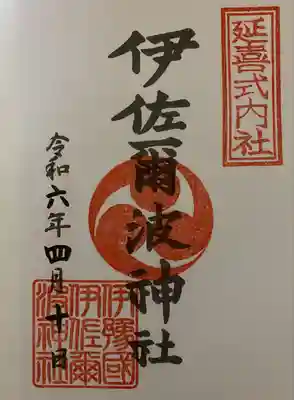 延喜式内社
伊佐爾波神社
令和六年四月十日
伊豫國
伊佐爾
波神社